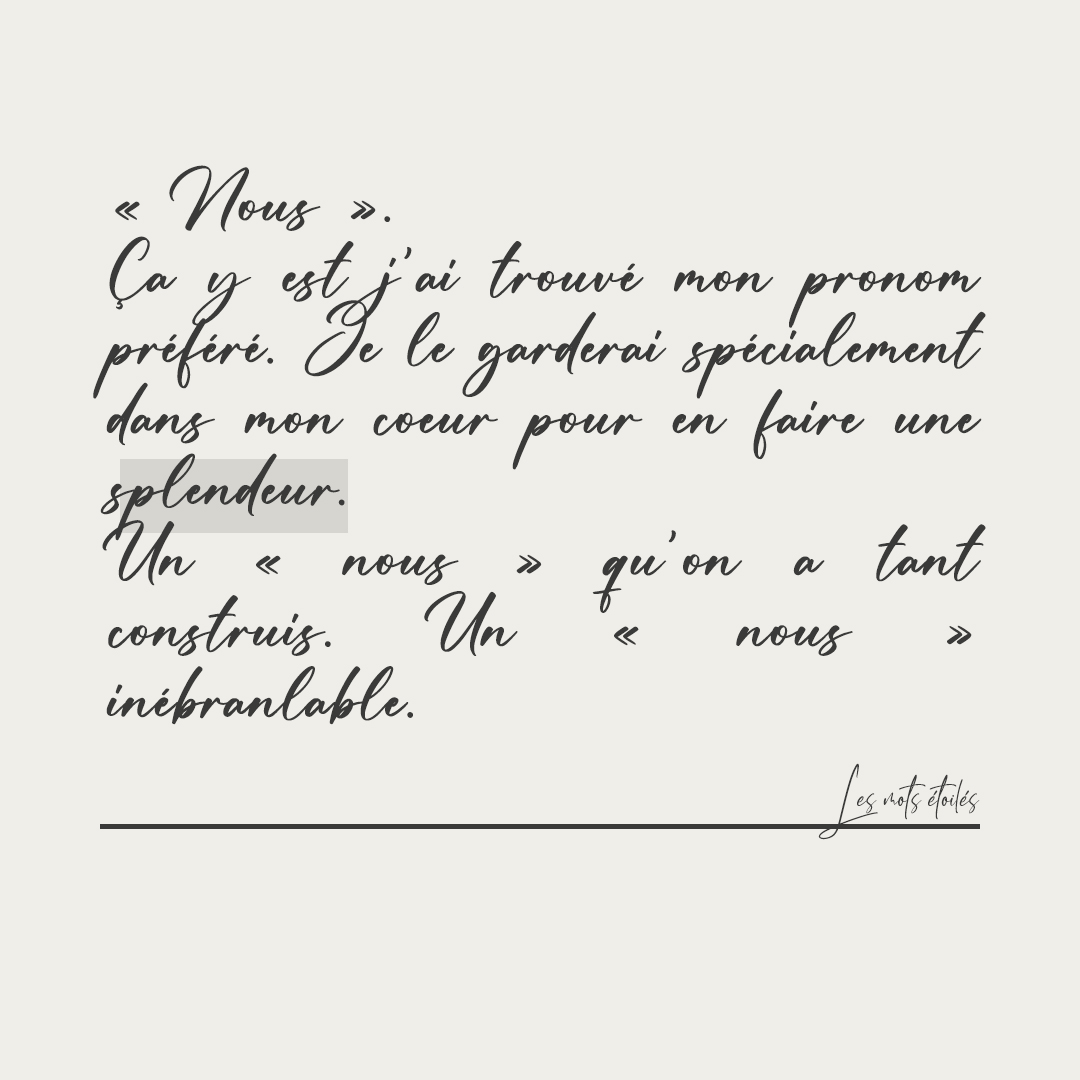 « Nous ».
Ça y est j'ai trouvé mon pronom
préféré. Je le garderai spécialement
dans mon coeur pour en faire une
splendeur.
Un « nous » qu'on a tant
construis. Un « nous »
inébranlable.
Les mots étoilés